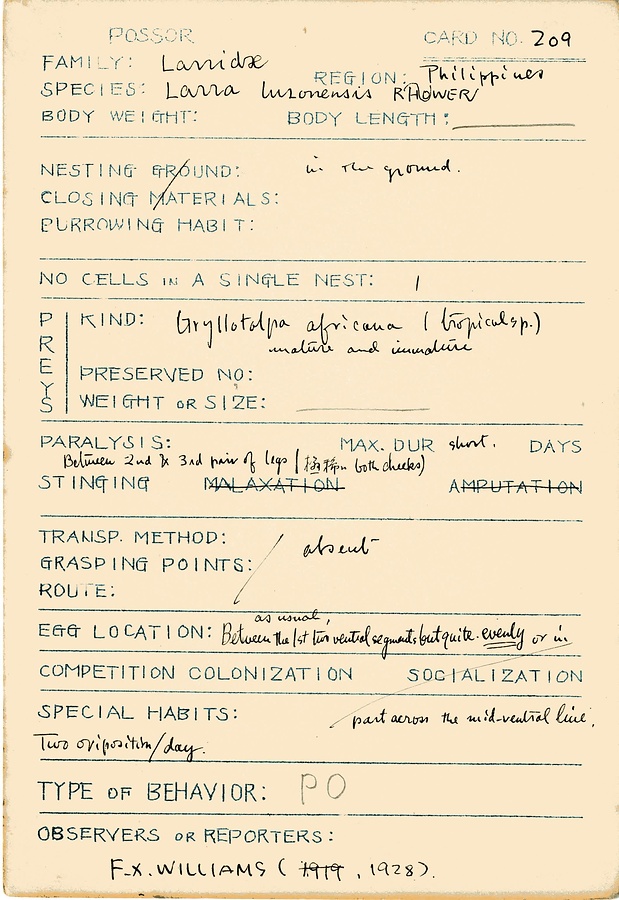 POSSOR CARD NO. 209
FAMILY: Larridæ REGION: Philippines
SPECIES: Larra luzonensis ROHWER
BODY WEIGHT: BODY LENGTH:
NESTING GROUND: in the ground.
CLOSING MATERIALS:
PURROWING HABIT:
NO CELLS IN A SINGLE NEST: 1
PREYS
KIND: Gryllotalpa africana (tropical sp.)
mature and immature
PRESERVED NO:
WEIGHT OR SIZE:
PARALYSIS: MAX. DUR short. DAYS
Between 2nd & 3rd pair of legs (極稀 both cheeks)
STINGING MALAXATION AMPUTATION
TRANSP. METHOD: absent
GRASPING POINTS:
ROUTE:
as usual,
EGG LOCATION: Between the 1st two ventral segments but quite evenly or in
COMPETITION COLONIZATION SOCIALIZATION
SPECIAL HABITS: part across the mid-ventral line.
Two oviposition/day.
TYPE OF BEHAVIOR: PO
OBSERVERS OR REPORTERS:
F.X. WILLIAMS (1919, 1928).